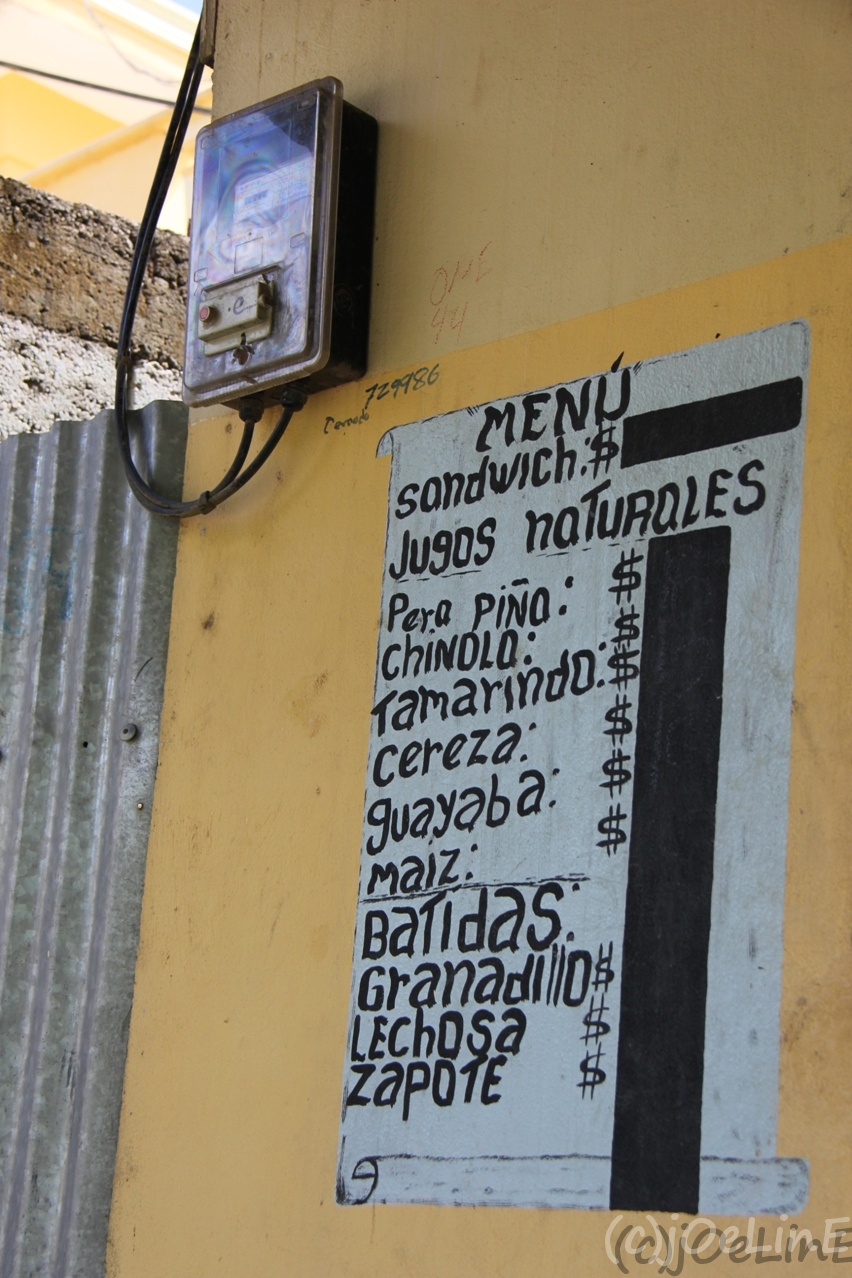 729986
MENÚ
sandwich: $
Jugos naturales
Pera Piña: $
Chinola: $
Tamarindo: $
cereza: $
guayaba: $
maiz: $
Batidas:
Granadillo $
LEchosa $
ZAPOTE $
(c)jOeLinE